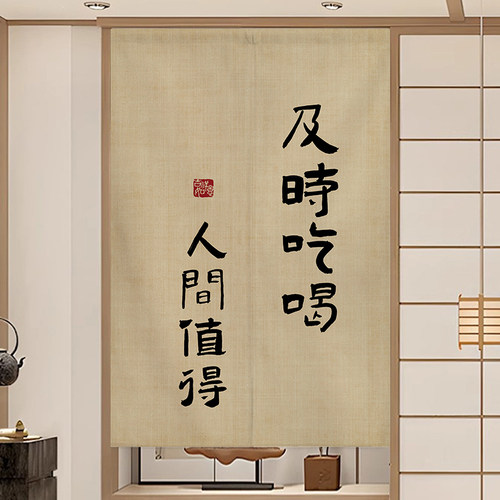 及時吃喝
人間值得